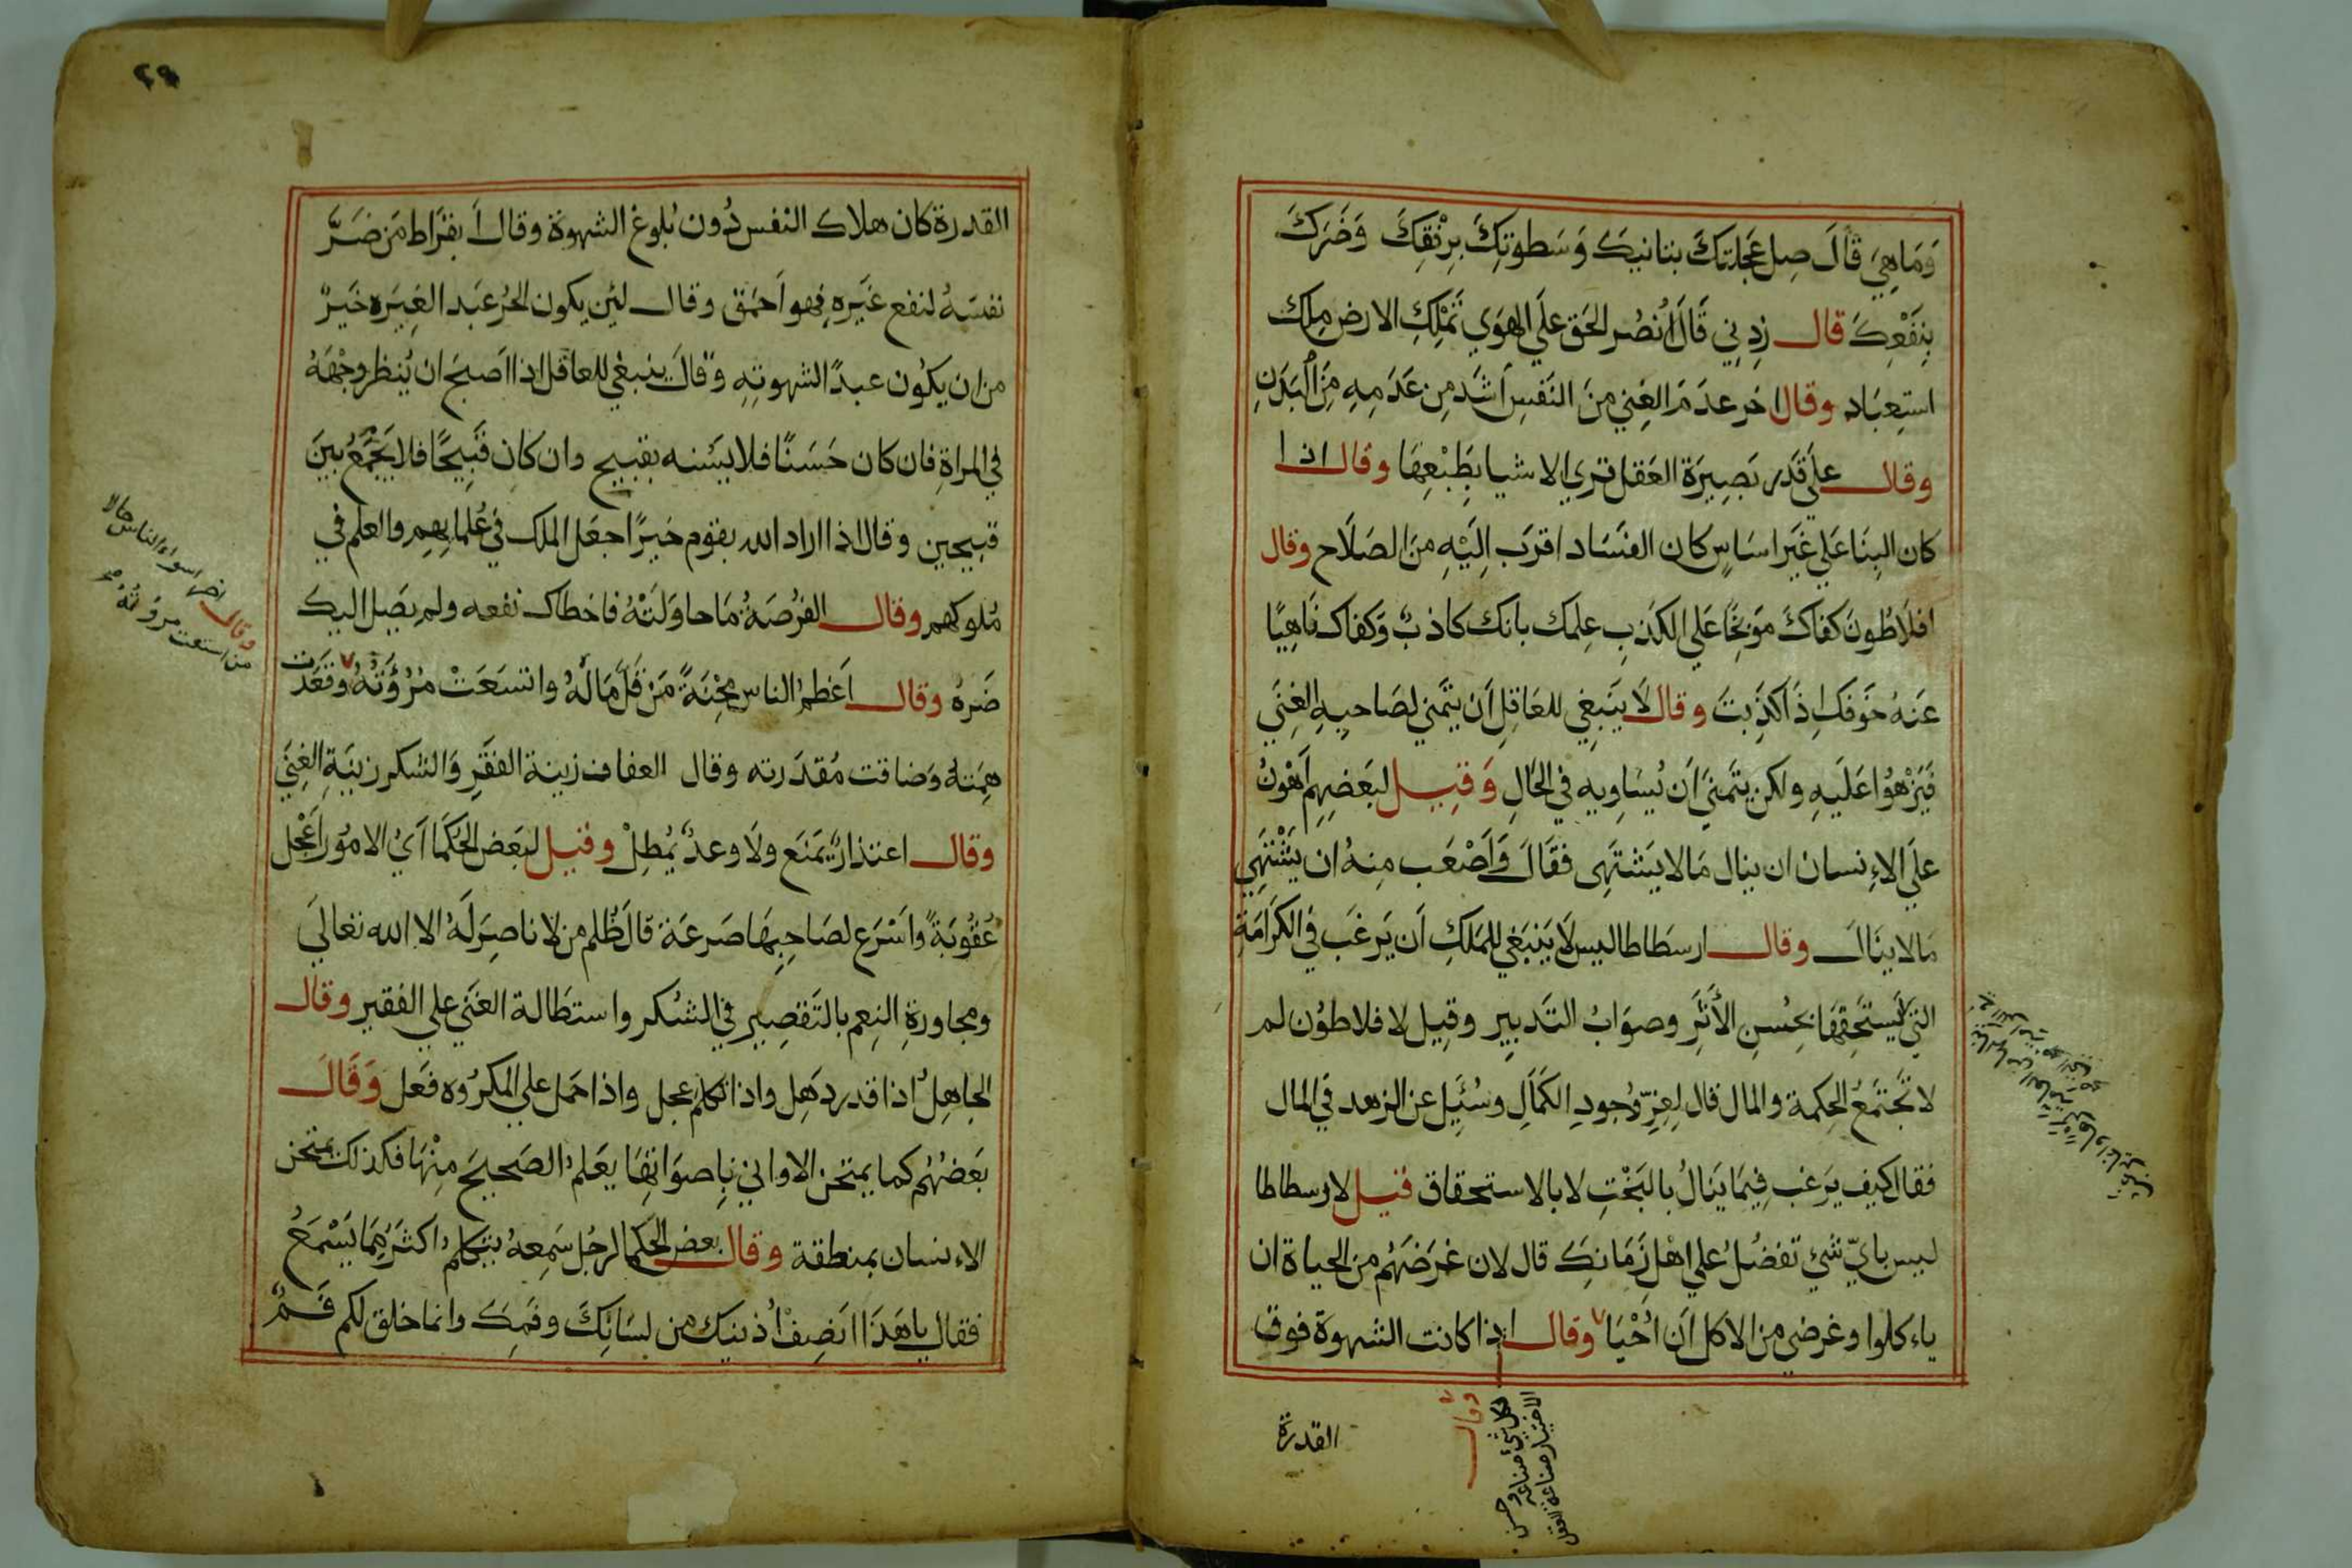 وَمَا هِيَ قَالَ صِل عَجَلتكَ بتانيكَ وَسَطوتِكَ بِرِفقِكَ وَضَركَ
بِنَفْعِكَ قال زِدنِي قَالَ اُنصُر الحَق عَلَي الهَوَي تَملِكِ الارض مِلك
استِعبَاد وقال اخر عدَمَ الغِني منَ النَفسِ اَشَد مِن عَدَمِهِ مِنَ البَدَنِ
وقال علَي قَدرِ بَصِيرَة العَقل تري الاشيا بِطَبْعِهَا وقال اذا
كان البِنَا عَلي غَيرِ اسَاسٍ كان الفسَاد اقرَب اِليَهِ مِنَ الصَلَاح وقال
افلَاطُونَ كفاكَ موَبِخًا عَلي الكَذِبِ عِلمك بانك كاذبٌ وَكفاك نَاهِيًا
عَنهُ خَوَفك اِذَا كَذِبتَ وقال لَا يَنبَغِي للعَاقِلِ اَن يتَمني لصَاحبِهِ الغِنَي
فَيَزْهُوا عَلَيهِ ولكن يتَمنَي اَن يُسَاوِيه في الحَالِ وَقيل لبَعَضِهِم اَهوَنُ
علَي الاءِنسان ان ينال مَالا يَشتَهِى فقَالَ وَاَصْعَب مِنهُ ان يَشْتَهِي
مَالا ينَال وقال ارسطَاطاليس لَا يَنبَغي للمَلكِ اَن يَرغَب في الكَرَامَةِ
التي لَا يَستَحِقهَا بحُسنِ الأَثَرِ وصوَابُ التَدبِيرِ وقِيل لافلاطوُن لم
لا تَجتَمَعُ الحِكمة والمال قال لِعِزِّ وُجودِ الكَمَالِ وسُئِيَل عن الزهد في المال
فقال كيف يَرغب فِيمَا يَنَالُ بالبَخْتِ لا بالاستحقاق قيل لارسطاطا
ليس بايّ شيٍ تفضُلُ علي اهْل زَمَانِكَ قال لان غرَضَهُم من الحياة ان
ياءكلوا وغرضي من الاكل اَن اَحْيَا وقال اذا كانت الشهوة فوق
القدرة
وقال
لكل شيء صناعه وحسن
الاختيار صناعة العقل
٢٩
القدرة كان هلاك النفس دُون بُلوغ الشهوة وقال اَبقرَاط مَن ضَرَّ
نفسَهُ لنفع غَيَره فهو اَحمَق وقال لئِن يكون الحُر عَبد الغيَره خَيرٌ
من ان يكوُن عبدًا الشهوتِهِ وقالَ ينبغي للعاقل اذا اصبحَ ان يُنظر وجْهَهُ
في المراةِ فان كان حَسَنًا فلا يشنه بقبيح وان كَان قَبِيحًا فلا يَجمَعُ بينَ
قبيحين وقال اذا اراد الله بقوم خيرًا جعَل الملك في عُلمايهِم والعلم في
مُلوكهم وقال الفرُصَةُ مَا حاوَلتَهُ فاخطاك نفعه ولم يصَل اليك
ضَرهُ وقال اَعظمُ الناس مِحْنَةً مَنْ قَلَّ مَالهُ واتسعَتْ مُرُؤَتهُ وبَعدَت
هِمَته وَضاقت مُقدَرته وقال العفاف زينة الفَقَرِ وَالشكر زينَةِ الغِنَي
وقال اعتذارٌ يَمَنَع ولَا وعدٌ يُمطِلْ وقيل لبَعَض الحُكَمَا اَيُ الامُور اَعْجَل
عُقُوبَةً واَسْرَع لصَاحِبِهَا صَرعَة قال ظُلم من لا ناصِرَ لَهُ الا الله تعالَي
ومجاورةِ النِعم بالتَقصِير في الشُكر واستطَالة الغَني علي الفقير وقال
الجاهِلُ اذا قدر ذَهِل واذا تكلم عجل واذا حمَل علي المكرُوه فعَل وَقَال
بَعَضهُم كما يمتحن الاواني بِاصوَاتِهَا يعَلم الصَحيحَ مِنْهَا فكذلك يمتحن
الاءنسان بمنطقة وقال بعض الحكما لرجُل سَمِعهُ يتكلم اكثَر مِمَا يَسْمَعُ
فقال يا هَذَا اَنصِفْ اُذنيك من لسَانِكَ وفمِكَ وانما خلق لكم فَمٌ
وقال اسواء الناس حالا
من اتسعت مروَّتهُ